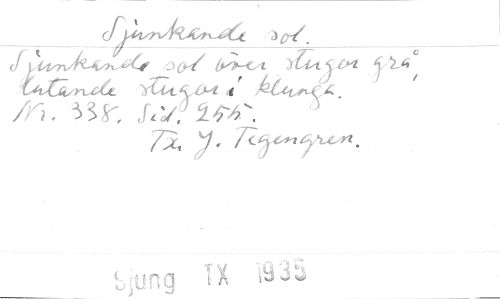 Sjunkande sol.
Sjunkande sol över stugor grå,
lutande stugor i klunga.
Nr. 338. Sid. 255.
Tx. J. Tegengren.
Sjung TX 1935